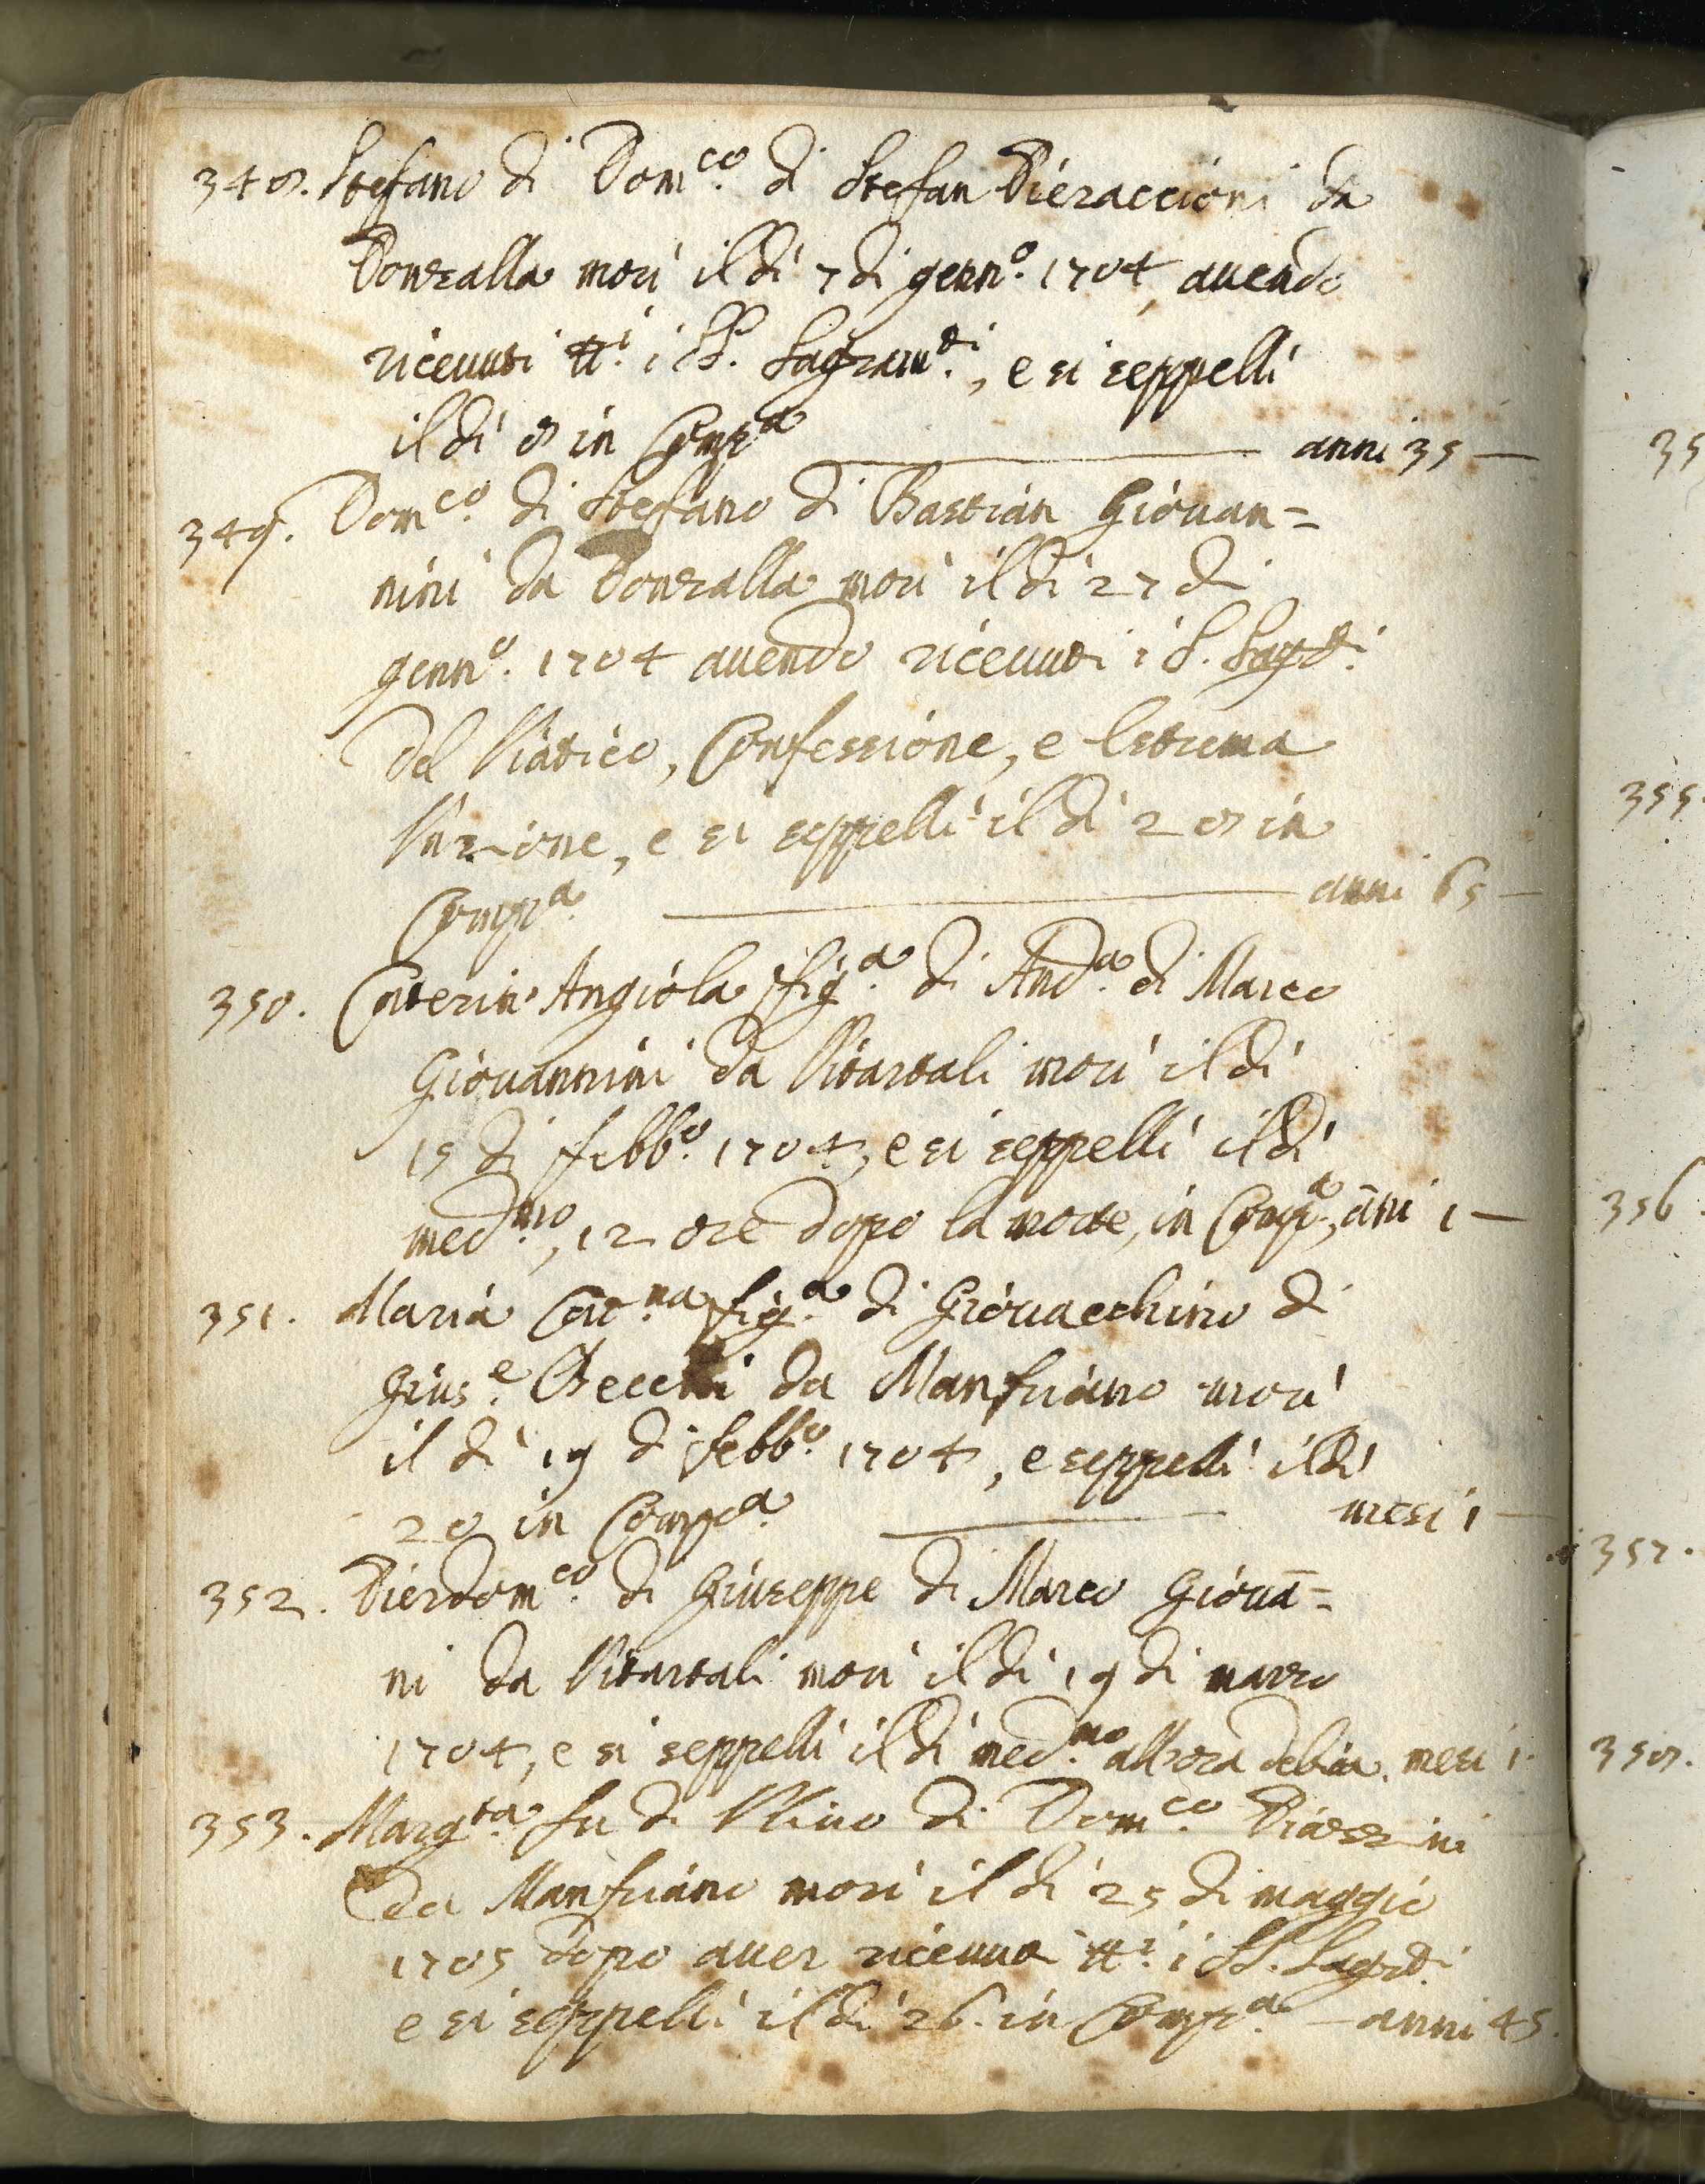 348. Stefano di Dom.co di Stefan Pieraccioni da
Donzalla morì il dì 7 di genn.o 1704, auendo
riceuuti tt.i i SS. Sagram.ti, e si seppellì
il dì 8 in Comp.a anni 35
349. Dom.co di Stefano di Bastian Giouan=
nini da Donzalla morì il dì 27 di
genn.o 1704 auendo riceuuti i S. Sagr.ti
del Viatico, Confessione, e Estrema
Vnzione, e si seppellì il dì 28 in
Comp.a anni 65
350. Caterin Angiola fig.a di And.a di Marco
Giouannini da Vitartali morì il dì
15 di febb.o 1704, e si seppellì il dì
med.mo, 12 ore dopo la morte, in Comp.a, āni 1
351. Maria Cat.na fig.a di Giouacchino di
Gius.e Becchi da Manfriano morì
il dì 19 di febb.o 1704, e seppellì il dì
20 in Comp.a mesi 1
352. Pierdom.co di Giuseppe di Marco Giouā=
ni da Vitartali morì il dì 19 di marzo
1704, e si seppellì il dì med.mo all'ora debita. mesi 1.
353. Marg.ta fu di Vliuo di Dom.co
da Manfriano morì il dì 25 di maggio
1705 dopo auer riceuuti tt.i i SS. Sagr.ti
e si seppellì il dì 26. in Comp.a anni 45.
35
355.
356.
357.
358.